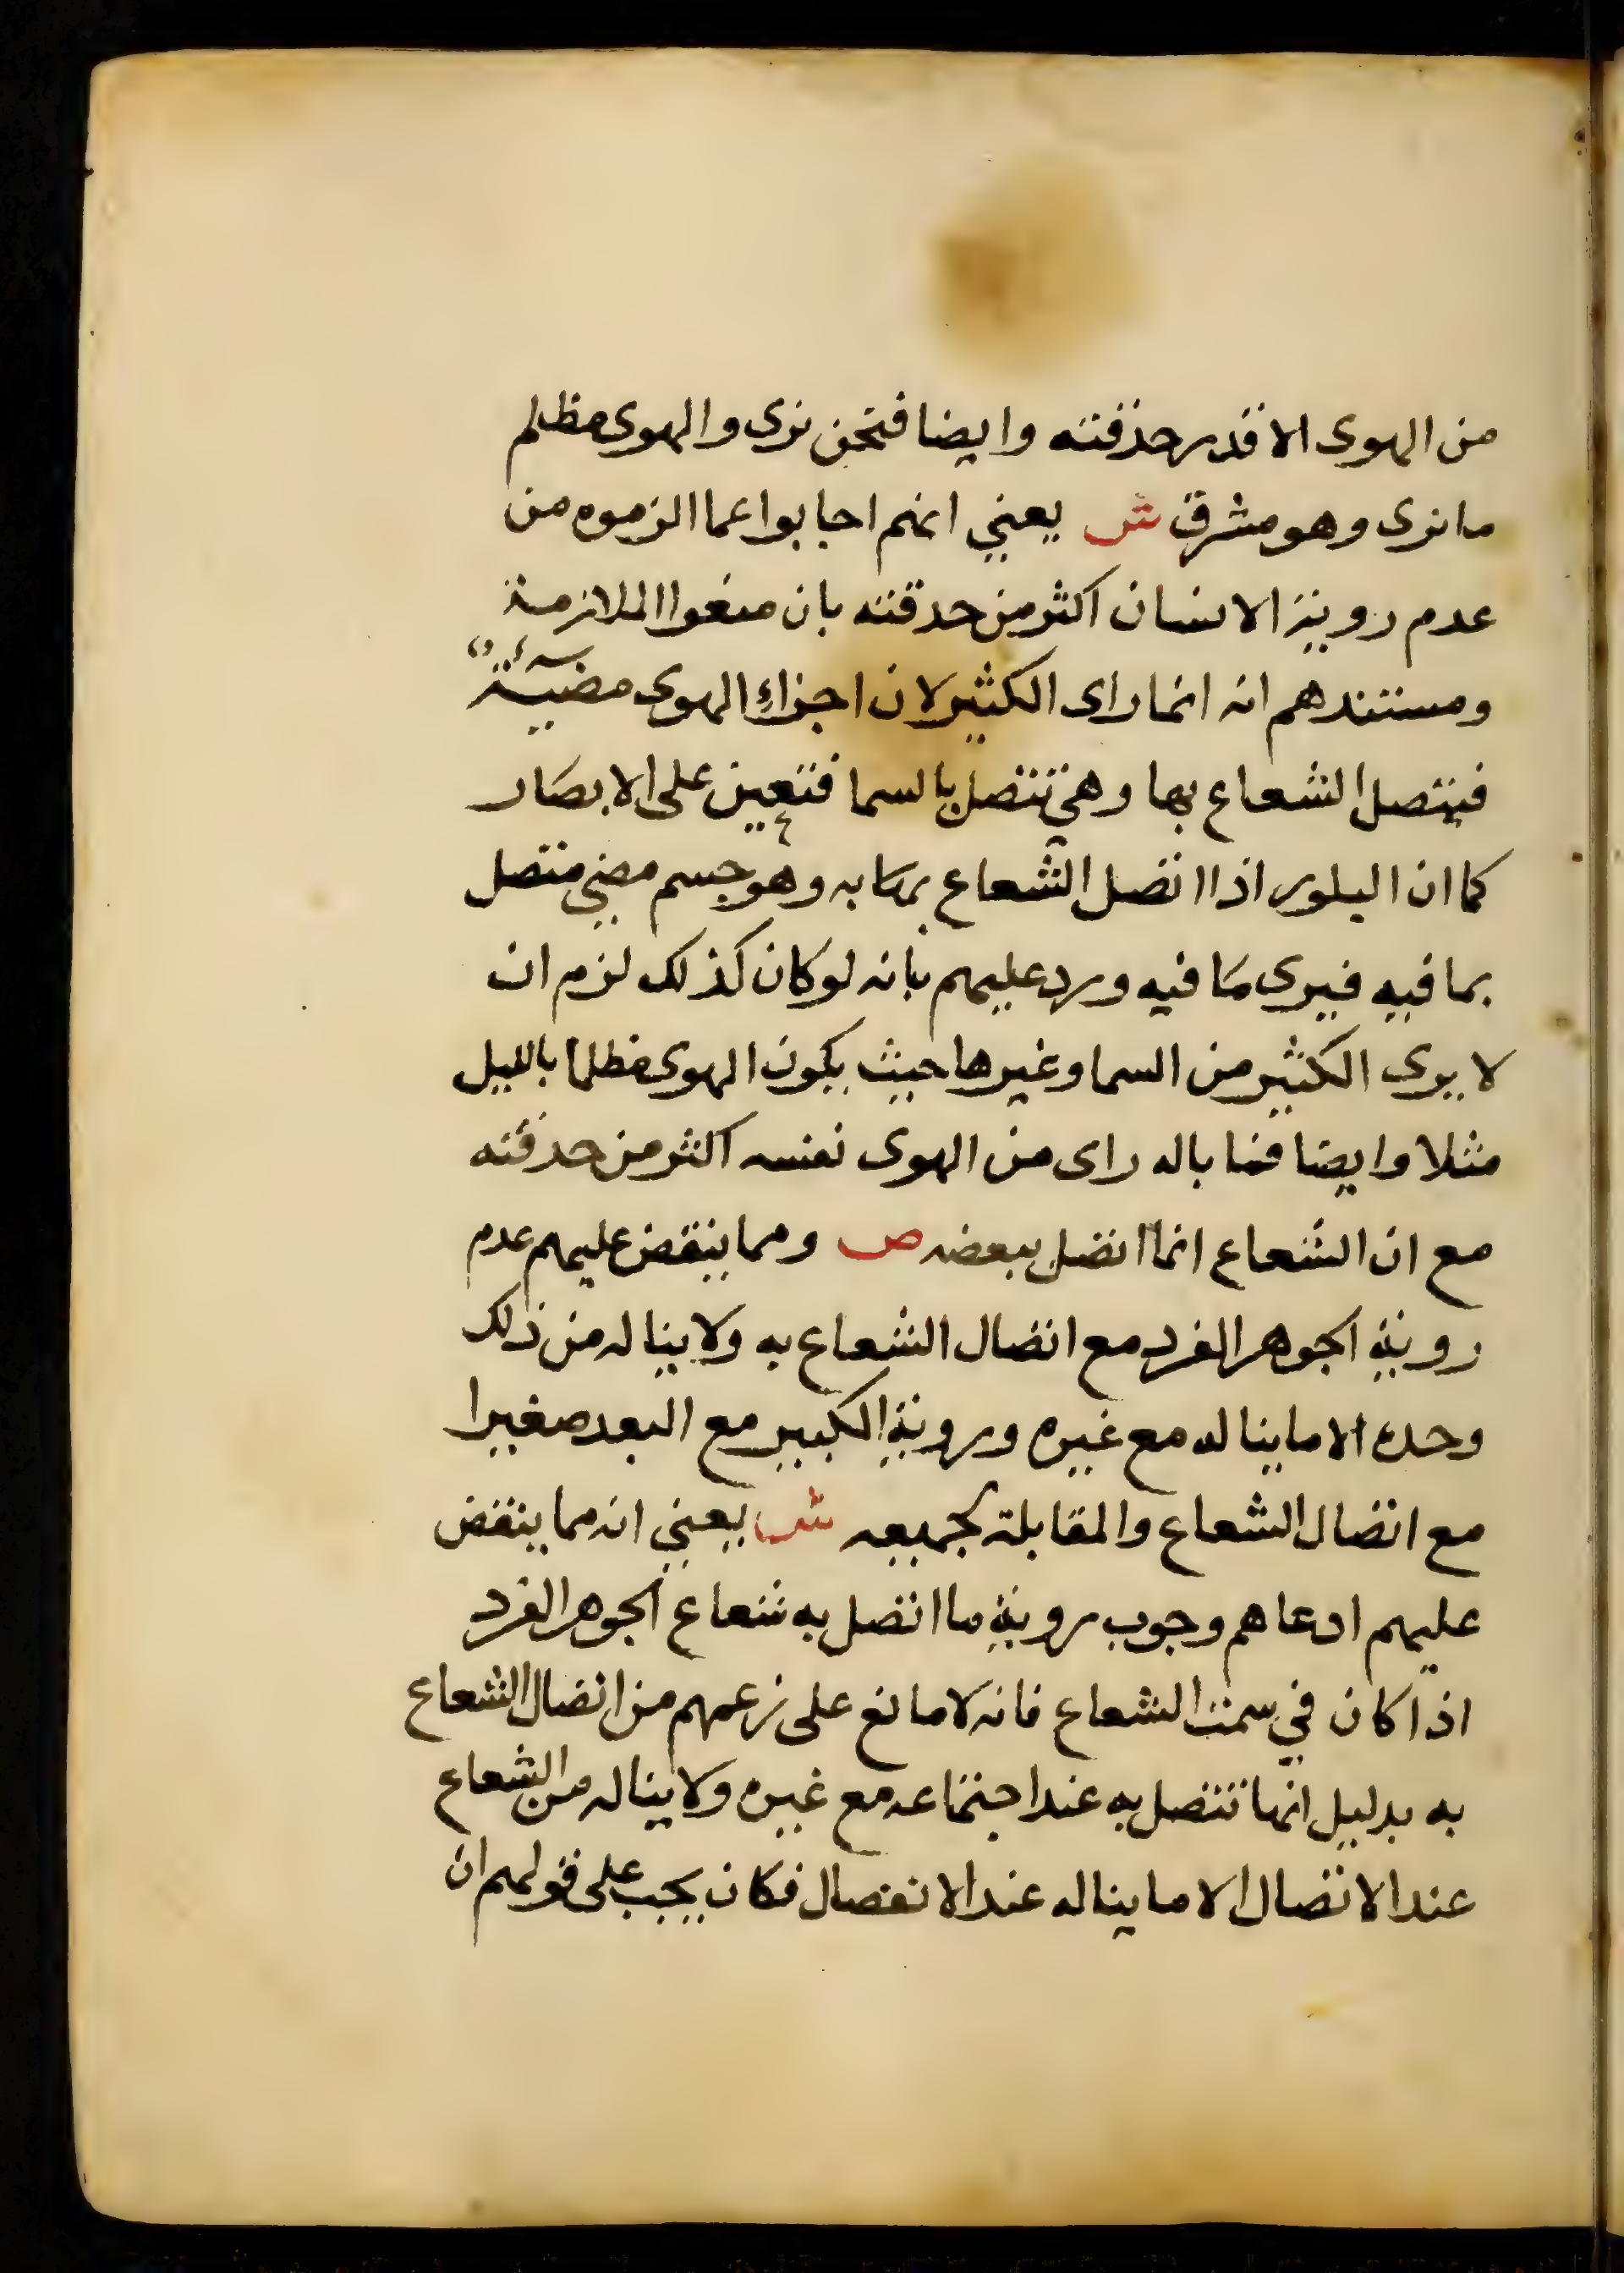 من الهوى الا قدر حدقته وايضا فنحن نرى والهوى مظلم
ما نرى وهو مشرق ش يعني انهم اجابوا عما الزموه من
عدم روية الانسان اكثر من حدقته بان منعوا الملازمة
ومستندهم انه انما راى الكثير لان اجزاء الهوى مضيئة
فيتصل الشعاع بها وهي تتصل بالسما فتعين على الابصار
كما ان البلور اذا اتصل الشعاع بما به وهو جسم مضي متصل
بما فيه فيرى ما فيه ورد عليهم بانه لو كان كذلك لزم ان
لا يرى الكثير من السما وغيرها حيث يكون الهوى مظلما بالليل
مثلا وايضا فما باله راى من الهوى نفسه اكثر من حدقته
مع ان الشعاع انما اتصل ببعضه ص ومما ينقض عليهم عدم
روية الجوهر الفرد مع اتصال الشعاع به ولا يناله من ذلك
وحده الا ما يناله مع غيره وروية الكبير مع البعد صغيرا
مع اتصال الشعاع والمقابلة بجميعه ش يعني انه مما ينقض
عليهم ادعاهم وجوب روية ما اتصل به شعاع الجوهر الفرد
اذا كان في سمت الشعاع فانه لا مانع على زعمهم من اتصال الشعاع
به بدليل انها تتصل به عند اجتماعه مع غيره ولا يناله من الشعاع
عند الاتصال الا ما يناله عند الانفصال فكان يجب على قولهم ان